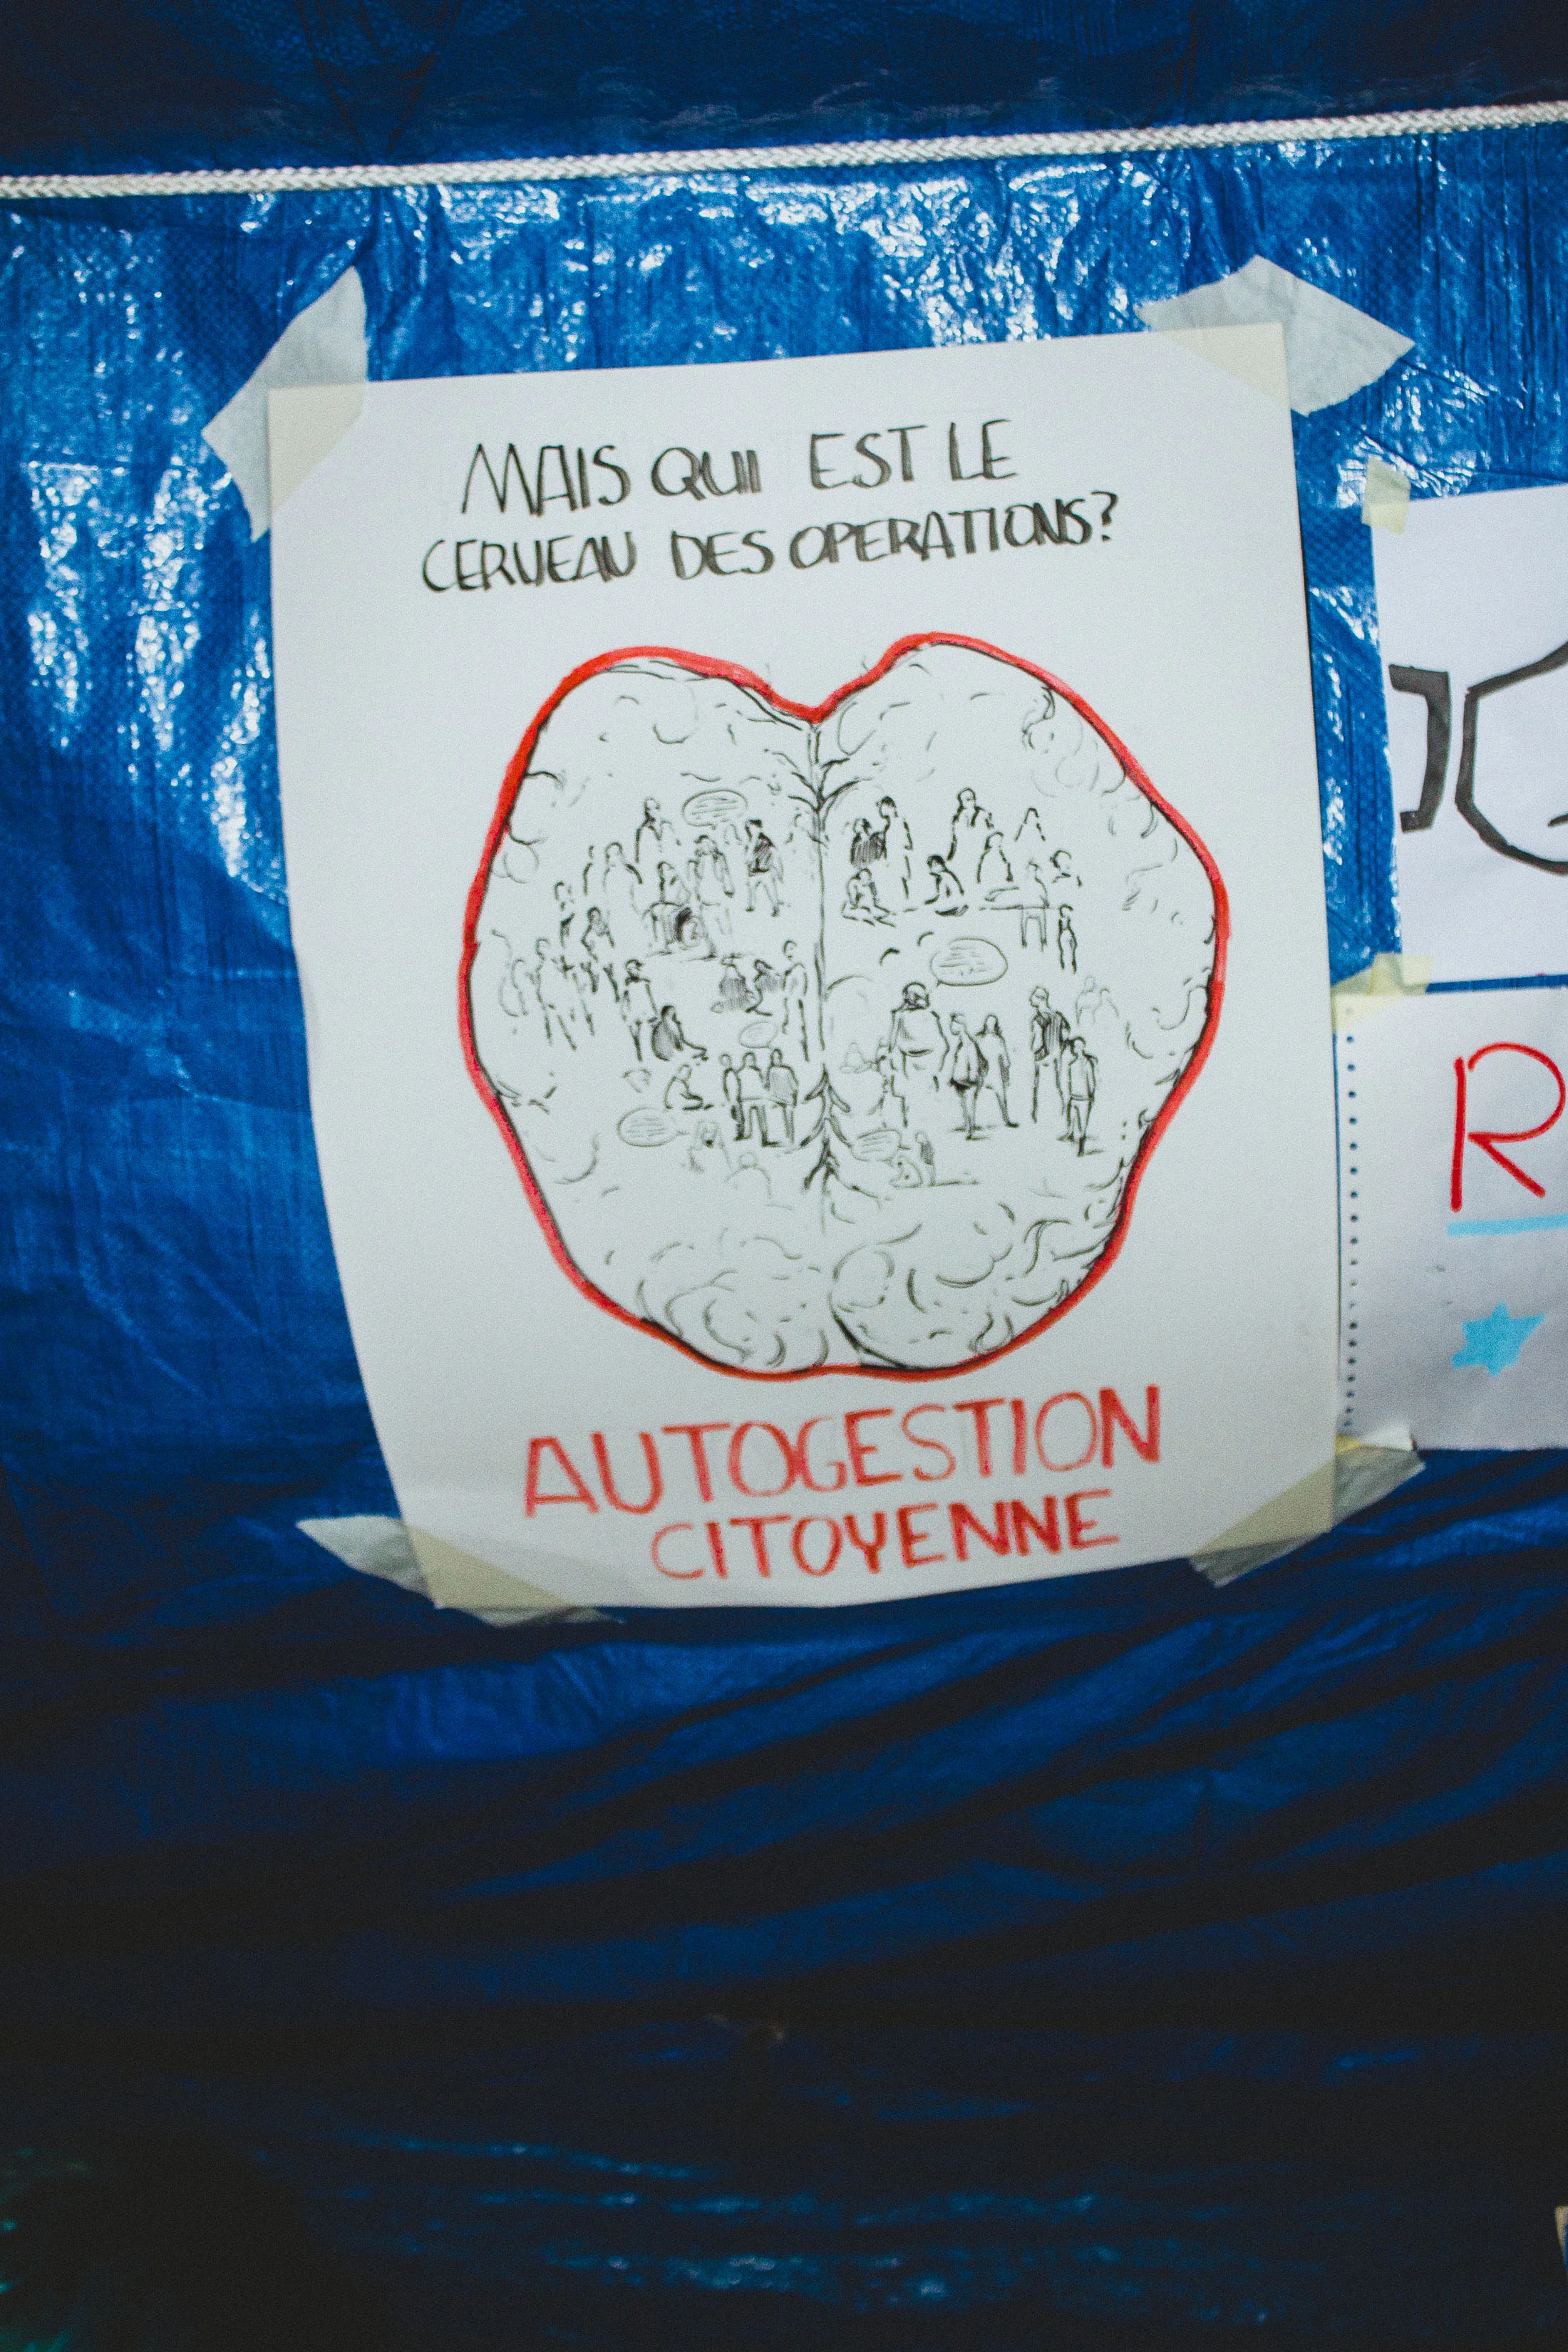 MAIS QUI EST LE
CERVEAU DES OPERATIONS?
AUTOGESTION
CITOYENNE
R